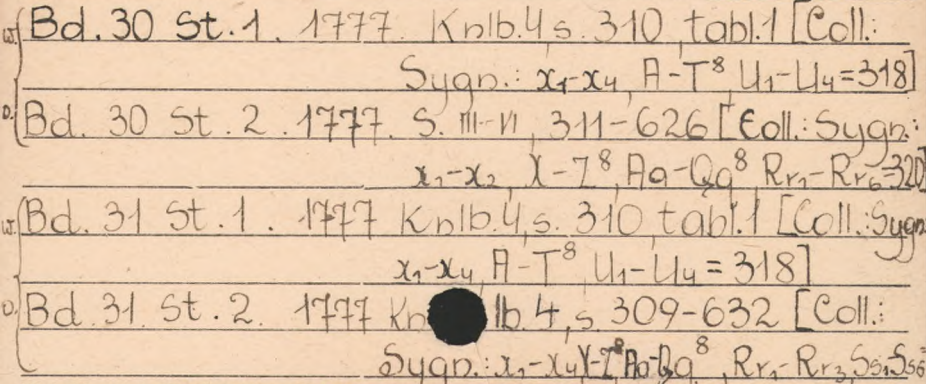 w. Bd. 30 St. 1. 1777. Knlb. 4 s. 310 tabl. 1 [Coll.:
Sygn.: x₁-x₄, A-T⁸ U₁-U₄=318]
D. Bd. 30 St. 2. 1777. S. III-VI, 311-626 [Coll.: Sygn.:
x₁-x₂, X-Z⁸, Aa-Qq⁸ Rr₁-Rr₆=320]
w. Bd. 31 St. 1. 1777 Knlb. 4, s. 310 tabl. 1 [Coll.: Sygn.
x₁-x₄, A-T⁸ U₁-U₄ = 318]
D. Bd. 31 St. 2. 1777 Kn lb. 4, s. 309-632 [Coll.:
Sygn.: x₁-x₄ X-Z⁸ Aa-Qq⁸, Rr₁-Rr₃, Ss₁-Ss₆=